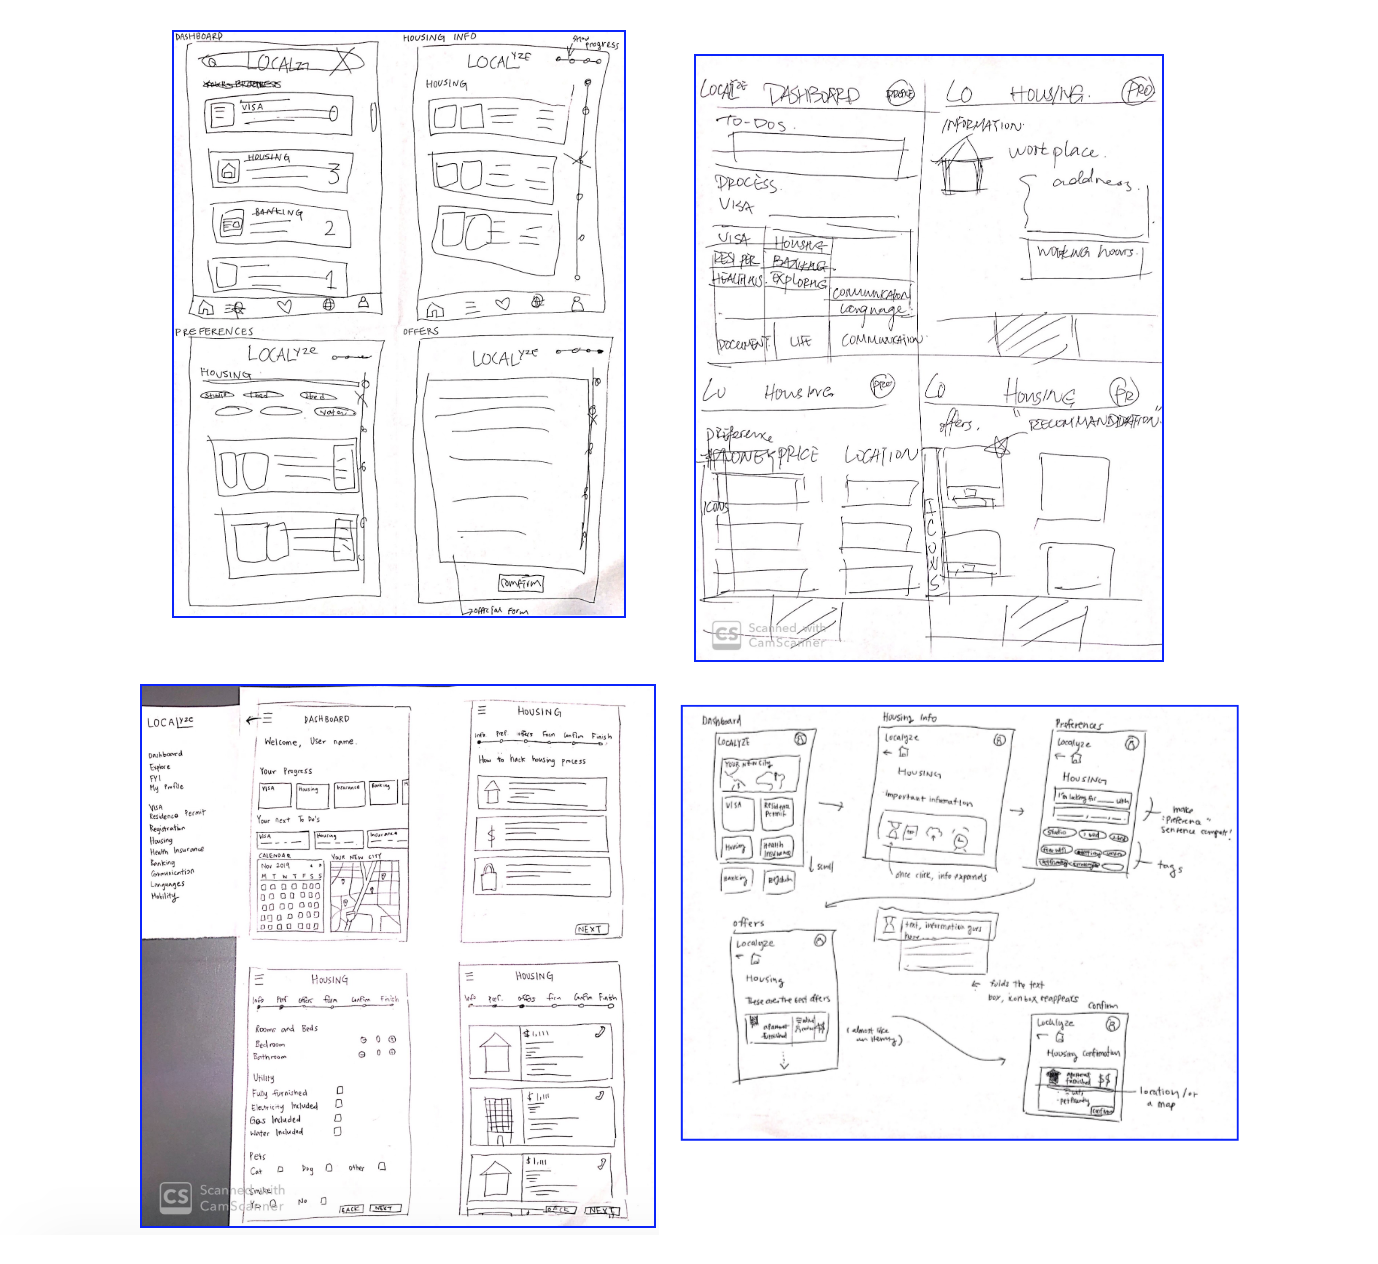 DASHBOARD
LOCALYZE
VISA
0
HOUSING
3
BANKING
2
1
HOUSING INFO
progress
LOCALYZE
HOUSING
PREFERENCES
LOCALYZE
HOUSING
OFFERS
LOCALYZE
confirm
official form
LOCALYZE DASHBOARD
TO-DOS.
PROCESS.
VISA
VISA HOUSING
BANKING
EXPLORING
COMMUNICATION
Language.
DOCUMENT LIFE COMMUNICATION
LO HOUSING. PRO
INFORMATION.
workplace.
address.
working hours.
LO HOUSING PRO
preference
PRICE LOCATION
ICONS
LO HOUSING PR
offers. "RECOMMANDDATION"
ICONS
CS Scanned with
CamScanner
LOCALYZE
Dashboard
Explore
FYI
My Profile
VISA
Residence Permit
Registration
Housing
Health Insurance
Banking
Communication
Languages
Mobility
DASHBOARD
Welcome, User name.
Your Progress
VISA Housing Insurance Banking
Your next To Do's
VISA Housing Insurance
CALENDAR
Nov 2019
M T W T F S S
YOUR NEW CITY
HOUSING
Info Pref offers Form Confirm Finish
How to hack housing process
$
NEXT
HOUSING
Info Pref offers form Confirm Finish
Rooms and Beds
Bedroom
Bathroom
Utility
Fully furnished
Electricity Included
Gas Included
Water Included
Pets
Cat Dog Other
Smoke
Yes No
BACK NEXT
CS Scanned with
CamScanner
HOUSING
Info Pref. offers form Confirm Finish
$1,111
$1,111
$1,111
BACK NEXT
Dashboard
LOCALYZE
YOUR NEW CITY
VISA Residence Permit
Housing Health Insurance
Banking
scroll
Housing Info
Localyze
HOUSING
important information
once click, info expands
text, information goes
here
folds the text
box, icon box reappears
Preferences
Localyze
HOUSING
I'm looking for ___ with
make
"Preference"
sentence
tags
offers
Localyze
Housing
These are the best offers
apartment
furnished
(almost like
an itinerary)
Confirm
Localyze
Housing confirmation
apartment
furnished
$$
confirm
location/or
a map